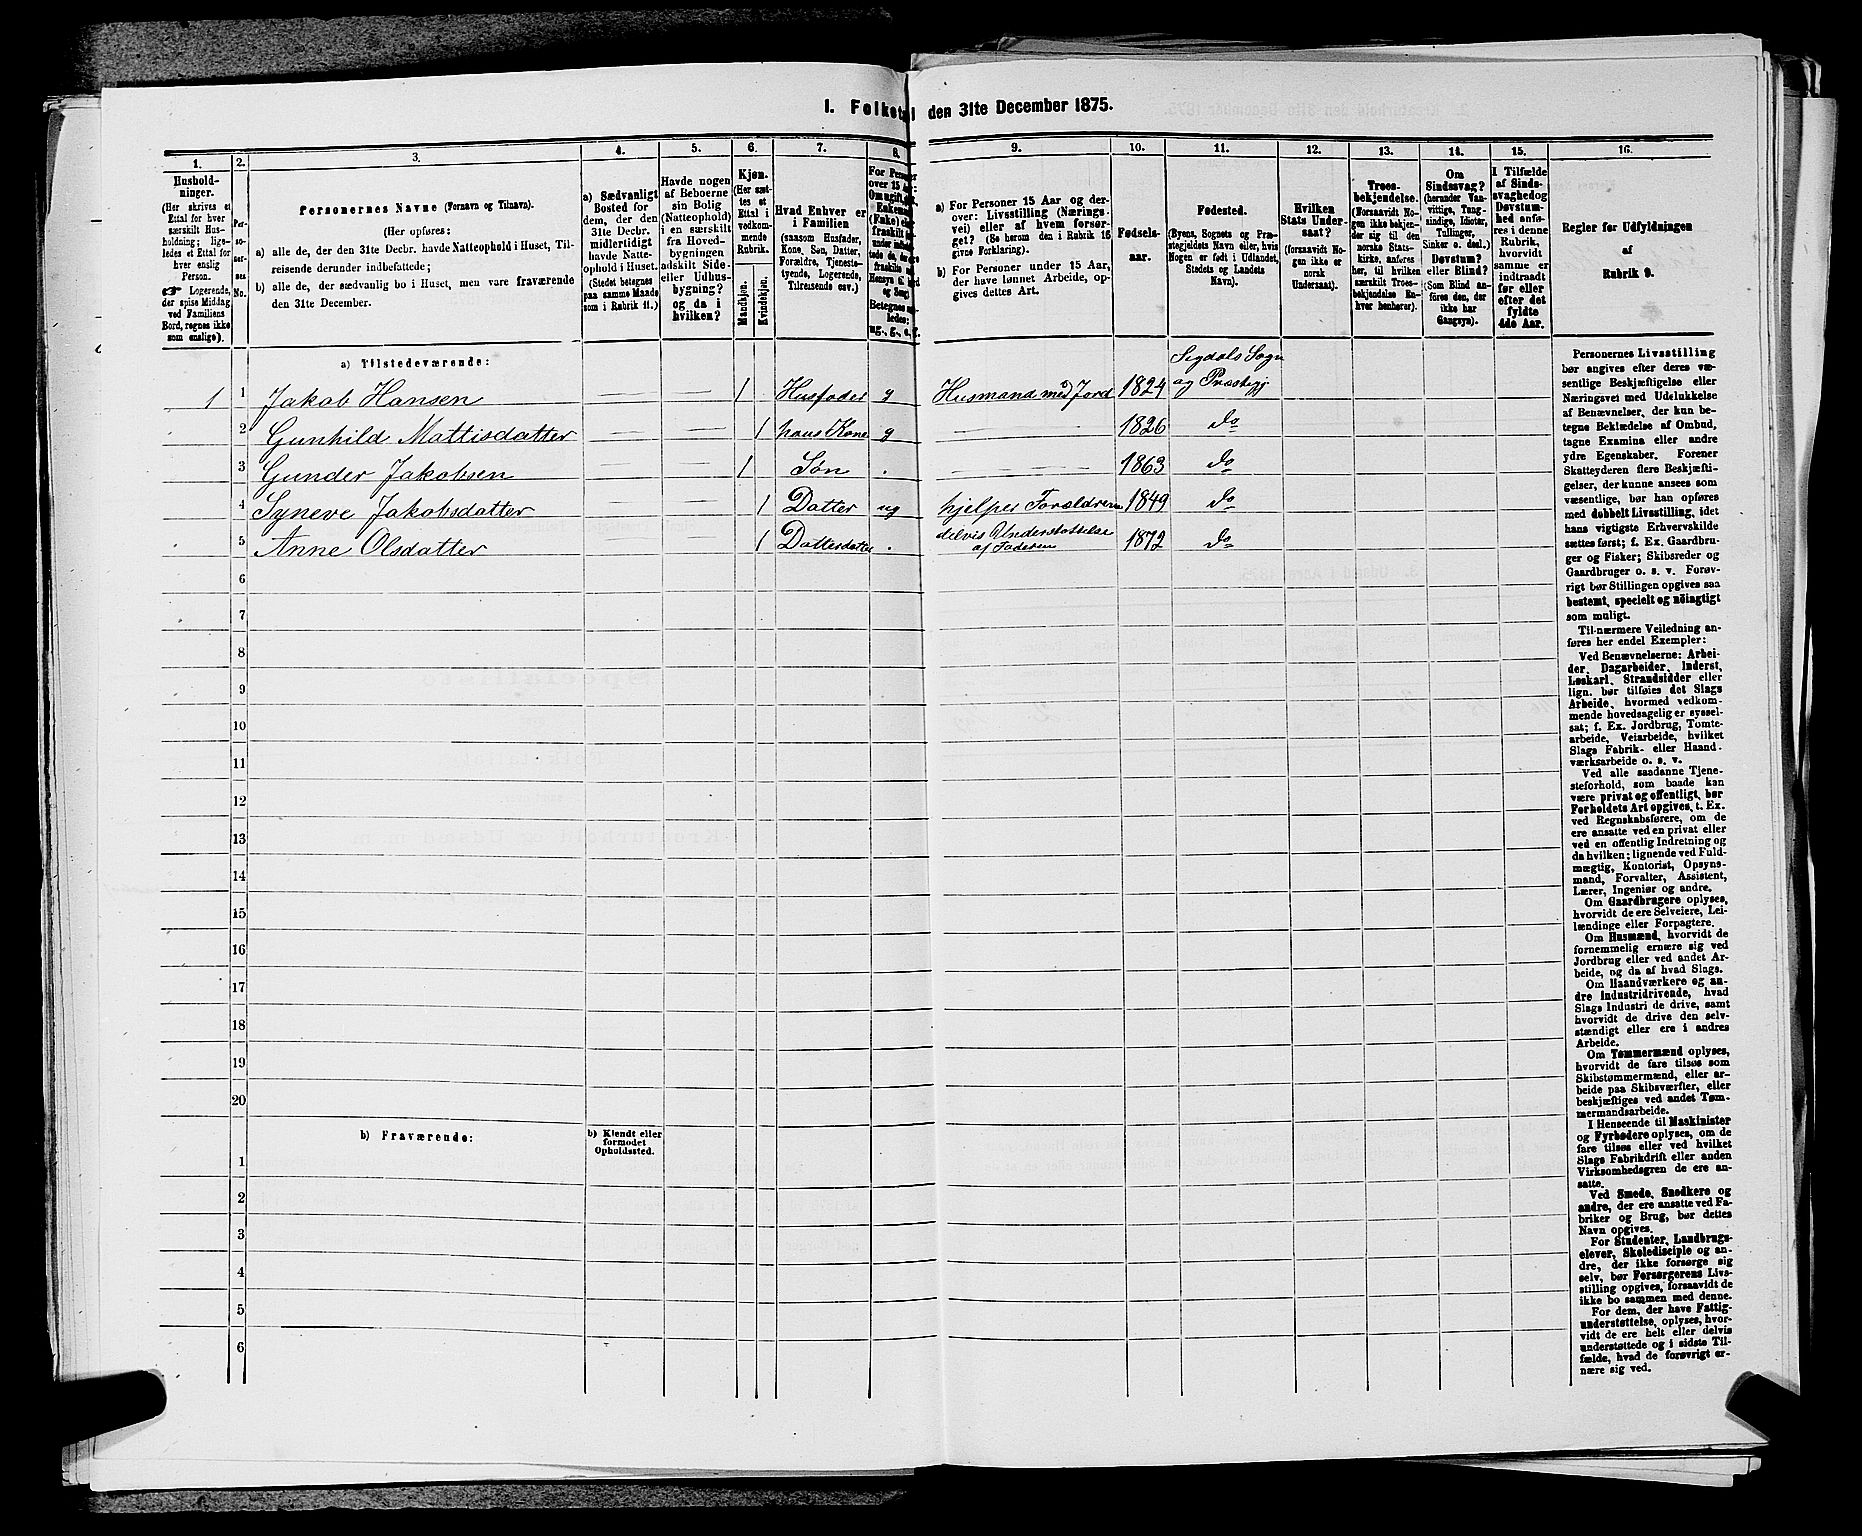 I. Folketal den 31te December 1875.
1.
2.
3.
4.
5.
6.
7.
8.
9.
10.
11.
12.
13.
14.
15.
16.
Hushold-
ninger.
(Her skrives et
Ettal for hver
særskilt Hus-
holdning; lige-
ledes et Ettal for
hver enslig
Person.
☛ Logerende,
der spise Middag
ved Familiens
Bord, regnes ikke
som enslige).
Per-
so-
ner-
nes
No.
Personernes Navne (Fornavn og Tilnavn).
(Her opføres:
a) alle de, der den 31te Decbr. havde Natteophold i Huset, Til-
reisende derunder indbefattede;
b) alle de, der sædvanlig bo i Huset, men vare fraværende
den 31te December.
a) Sædvanligt
Bosted for
dem, der den
31te Decbr.
midlertidigt
havde Natte-
ophold i Huset.
(Stedet betegnes
paa samme Maade
som i Rubrik 11.)
Havde nogen
af Beboerne
sin Bolig
(Natteophold)
i en særskilt
fra Hoved-
bygningen
adskilt Side-
eller Udhus-
bygning?
og da i
hvilken?
Kjøn.
(Her sæt-
tes et
Ettal i
vedkom-
mende
Rubrik.
Mandkjøn.
Kvindekjøn.
Hvad Enhver er
i Familien
(saasom Husfader,
Kone, Søn, Datter,
Forældre, Tjeneste-
tyende, Logerende,
Tilreisende osv.)
For Personer
over 15 Aar:
a) For Personer 15 Aar og der-
over: Livsstilling (Nærings-
vei) eller af hvem forsør-
get? (Se herom den i Rubrik 16
givne Forklaring).
b) For Personer under 15 Aar,
der have lønnet Arbeide, op-
gives dettes Art.
Fødsels-
aar.
Fødested.
(Byens, Sognets og Præ-
stegjeldets Navn eller, hvis
Nogen er født i Udlandet,
Stedets og Landets
Navn).
Hvilken
Stats Under-
saat?
(forsaavidt No-
gen ikke er
norsk
Undersaat).
Troes-
bekjendelse.
(Forsaavidt No-
gen ikke bekjen-
der sig til den
norske Stats-
kirke, anføres
her, til hvilken
særskilt Troes-
bekjendelse En-
hver henhører).
Om
Sindssvag?
(herunder Van-
vittige, Tung-
sindige, Idioter,
Tullinger,
Sinker o. desl.)
Døvstum?
eller Blind?
(Som Blind an-
føres den, der
ikke har
Gangsyn).
I Tilfælde
af Sinds-
svaghed og
Døvstum-
hed anfø-
res i denne
Rubrik,
hvorvidt
samme er
indtraadt
før eller
efter det
fyldte
4de Aar.
Regler for Udfyldningen
af
Rubrik 9.
a) Tilstedeværende:
Sigdals Sogn
1 1 Jakob Hansen — — 1 Husfader g Husmand med Jord 1824 og Præstegj
2 Gunhild Mattisdatter — — 1 hans Kone g — 1826 do
3 Gunder Jakobsen — — 1 Søn . — 1863 do
4 Syneve Jakobsdatter — — 1 Datter ug hjelper Forældrene 1849 do
5 Anne Olsdatter — — 1 Datterdatter . delvis Understøttelse 1872 do
af Faderen
6
7
8
9
10
11
12
13
14
15
16
17
18
19
20
b) Fraværende:
b) Kjendt eller
formodet
Opholdssted.
1
2
3
4
5
6
Personernes Livsstilling
bør angives efter deres væ-
sentlige Beskjæftigelse eller
Næringsvei med Udelukkelse
af Benævnelser, der kun be-
tegne Beklædelse af Ombud,
tagne Examina eller andre
ydre Egenskaber. Forener
Skatteyderen flere Beskjæfti-
gelser, der kunne ansees som
væsentlige, bør han opføres
med dobbelt Livsstilling, idet
hans vigtigste Erhvervskilde
sættes først; f. Ex. Gaardbru-
ger og Fisker; Skibsreder og
Gaardbruger o. s. v. Forøv-
rigt bør Stillingen opgives saa
bestemt, specielt og nöiagtigt
som muligt.
Til nærmere Veiledning an-
føres her endel Exempler:
Ved Benævnelserne: Arbei-
der, Dagarbeider, Inderst,
Løskarl, Strandsidder eller
lign. bør tilføies det Slags
Arbeide, hvormed vedkom-
mende hovedsagelig er syssel-
sat; f. Ex. Jordbrug, Tomte-
arbeide, Veiarbeide, hvilket
Slags Fabrik- eller Haand-
værksarbeide o. s. v.
Ved alle saadanne Tjene-
steforhold, som baade kan
være privat og offentligt, bør
Forholdets Art opgives, t. Ex.
ved Regnskabsførere, om de
ere ansatte ved en privat eller
ved en offentlig Indretning og
da hvilken; lignende ved Fuld-
mægtig, Kontorist, Opsyns-
mand, Forvalter, Assistent,
Lærer, Ingeniør og andre.
Om Gaardbrugere oplyses,
hvorvidt de ere Selveiere, Lei-
lændinge eller Forpagtere.
Om Husmænd, hvorvidt de
fornemmelig ernære sig ved
Jordbrug eller ved andet Ar-
beide, og da af hvad Slags.
Om Haandværkere og an-
dre Industridrivende, hvad
Slags Industri de drive, samt
hvorvidt de drive den selv-
stændigt eller ere i andres
Arbeide.
Om Tømmermænd oplyses,
hvorvidt de fare tilsøs som
Skibstømmermænd, eller ar-
beide paa Skibsværfter, eller
beskjæftiges ved andet Tøm-
mermandsarbeide.
I Henseende til Maskinister
og Fyrbødere oplyses, om de
fare tilsøs eller ved hvilket
Slags Fabrikdrift eller anden
Virksomhedsgren de ere an-
satte.
Ved Smede, Snedkere og
andre, der ere ansatte ved Fa-
briker og Brug, bør dettes
Navn opgives.
For Studenter, Landbrugs-
elever, Skoledisciple og an-
dre, der ikke forsørge sig
selv, bør Forsørgerens Livs-
stilling opgives, forsaavidt de
ikke bo sammen med denne.
For dem, der have Fattig-
understøttelse, oplyses, hvor-
vidt de ere helt eller delvis
understøttede og i sidste Til-
fælde, hvad de forøvrigt er-
nære sig ved.